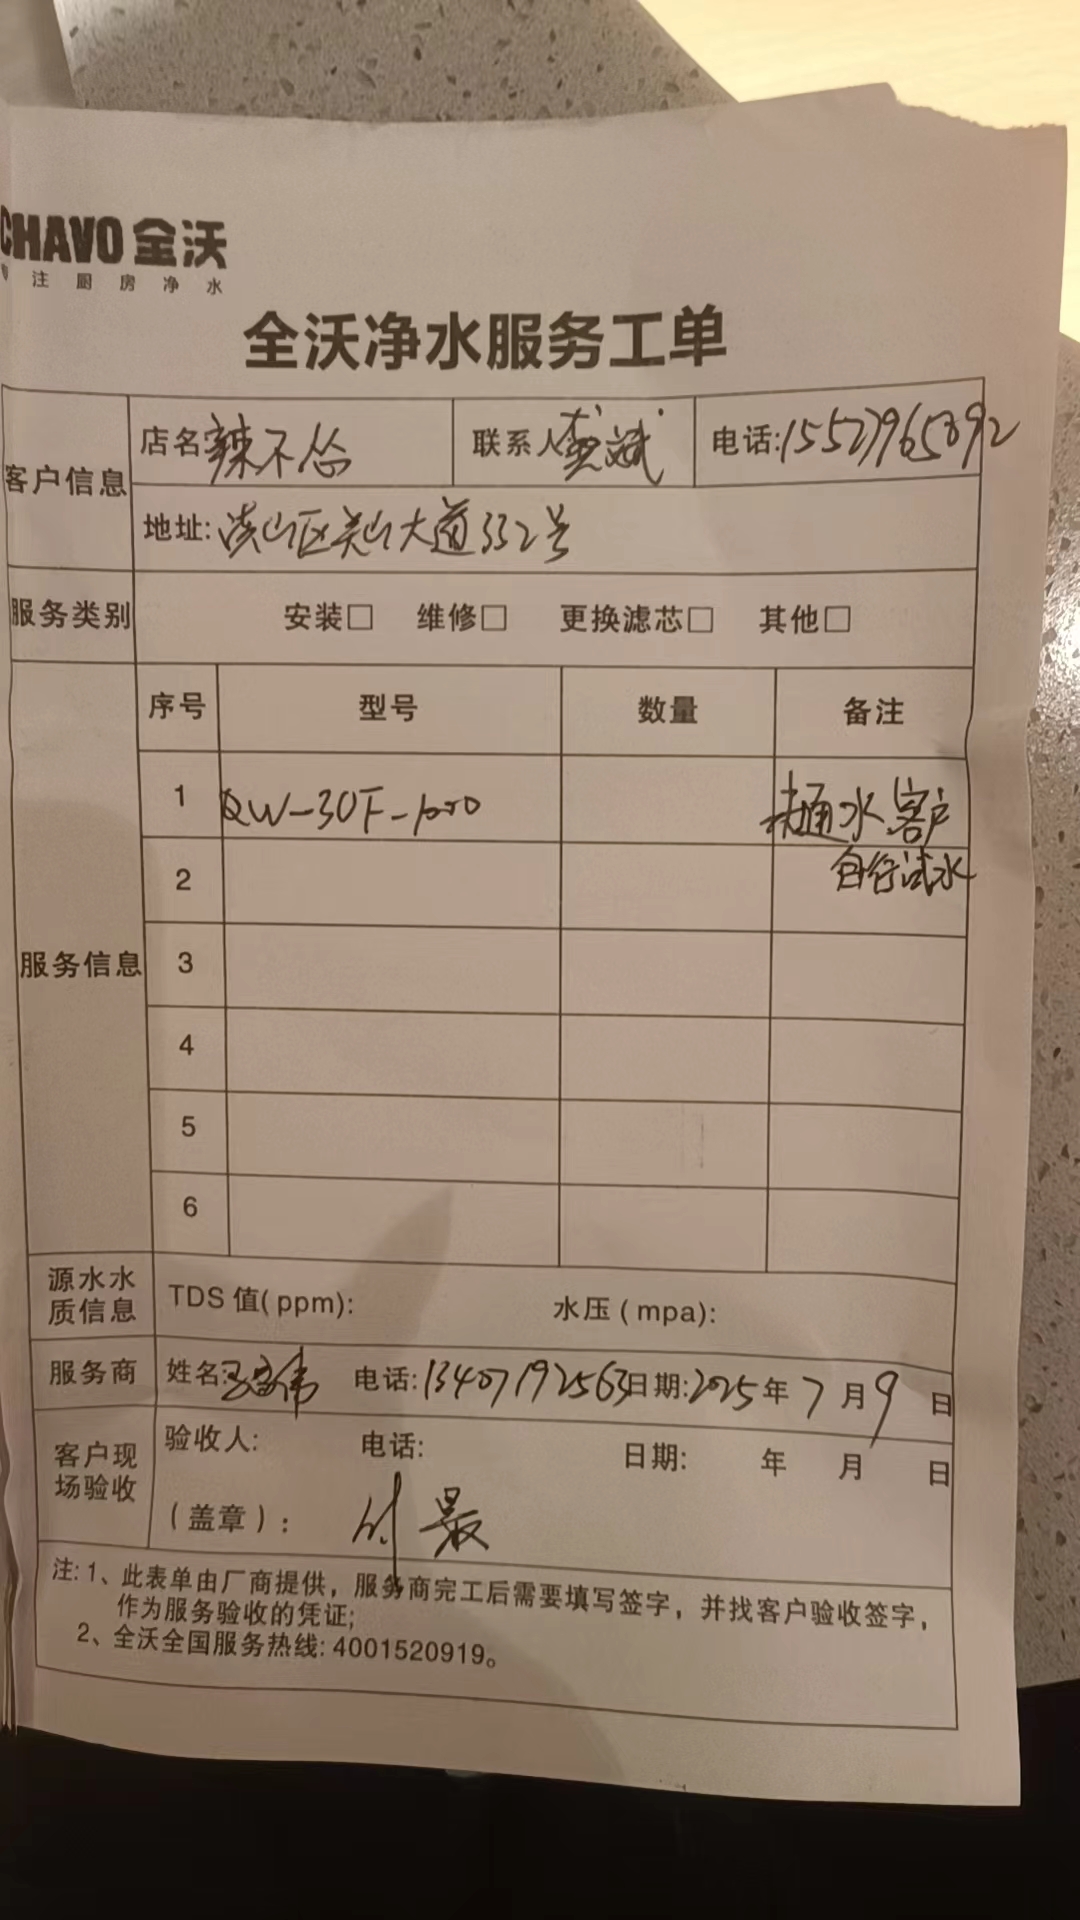 CHAVO 全沃
专注厨房净水
全沃净水服务工单
客户信息
店名:辣不怂 联系人 斌 电话:15527965392
地址:洪山区关山大道332号
服务类别 安装□ 维修□ 更换滤芯□ 其他□
服务信息
序号 型号 数量 备注
1 QW-30F-pro 未通水 客户
2 自行试水
3
4
5
6
源水水质信息 TDS 值(ppm): 水压(mpa):
服务商 姓名:王 伟 电话:13407192563 日期:2025年7月9日
客户现场验收 验收人: 电话: 日期: 年 月 日
(盖章):
注:1、此表单由厂商提供,服务商完工后需要填写签字,并找客户验收签字,
作为服务验收的凭证;
2、全沃全国服务热线:4001520919。